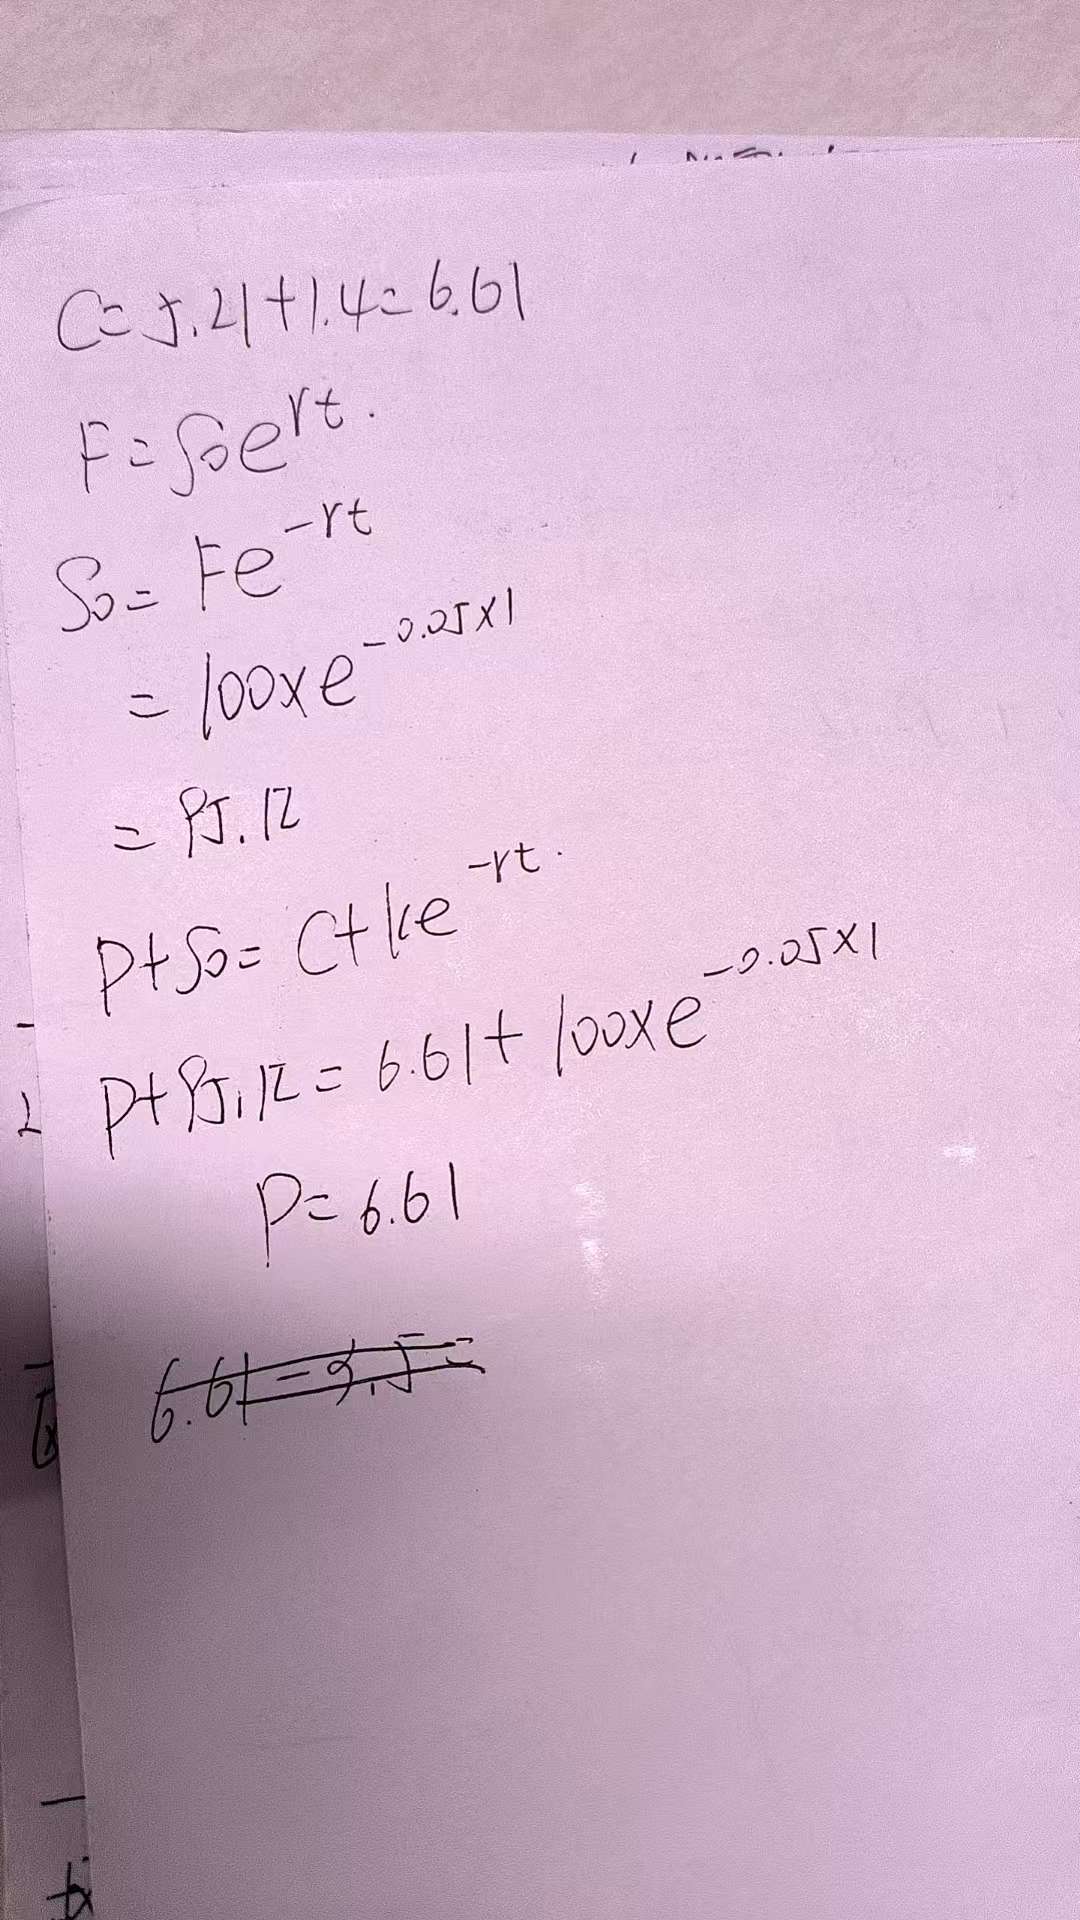 C=5.21+1.4=6.61
F=S₀e^rt.
S₀=Fe^-rt
=100×e^-0.05×1
=95.12
P+S₀=C+ke^-rt.
P+95.12=6.61+100×e^-0.05×1
P=6.61
6.61-3.5=